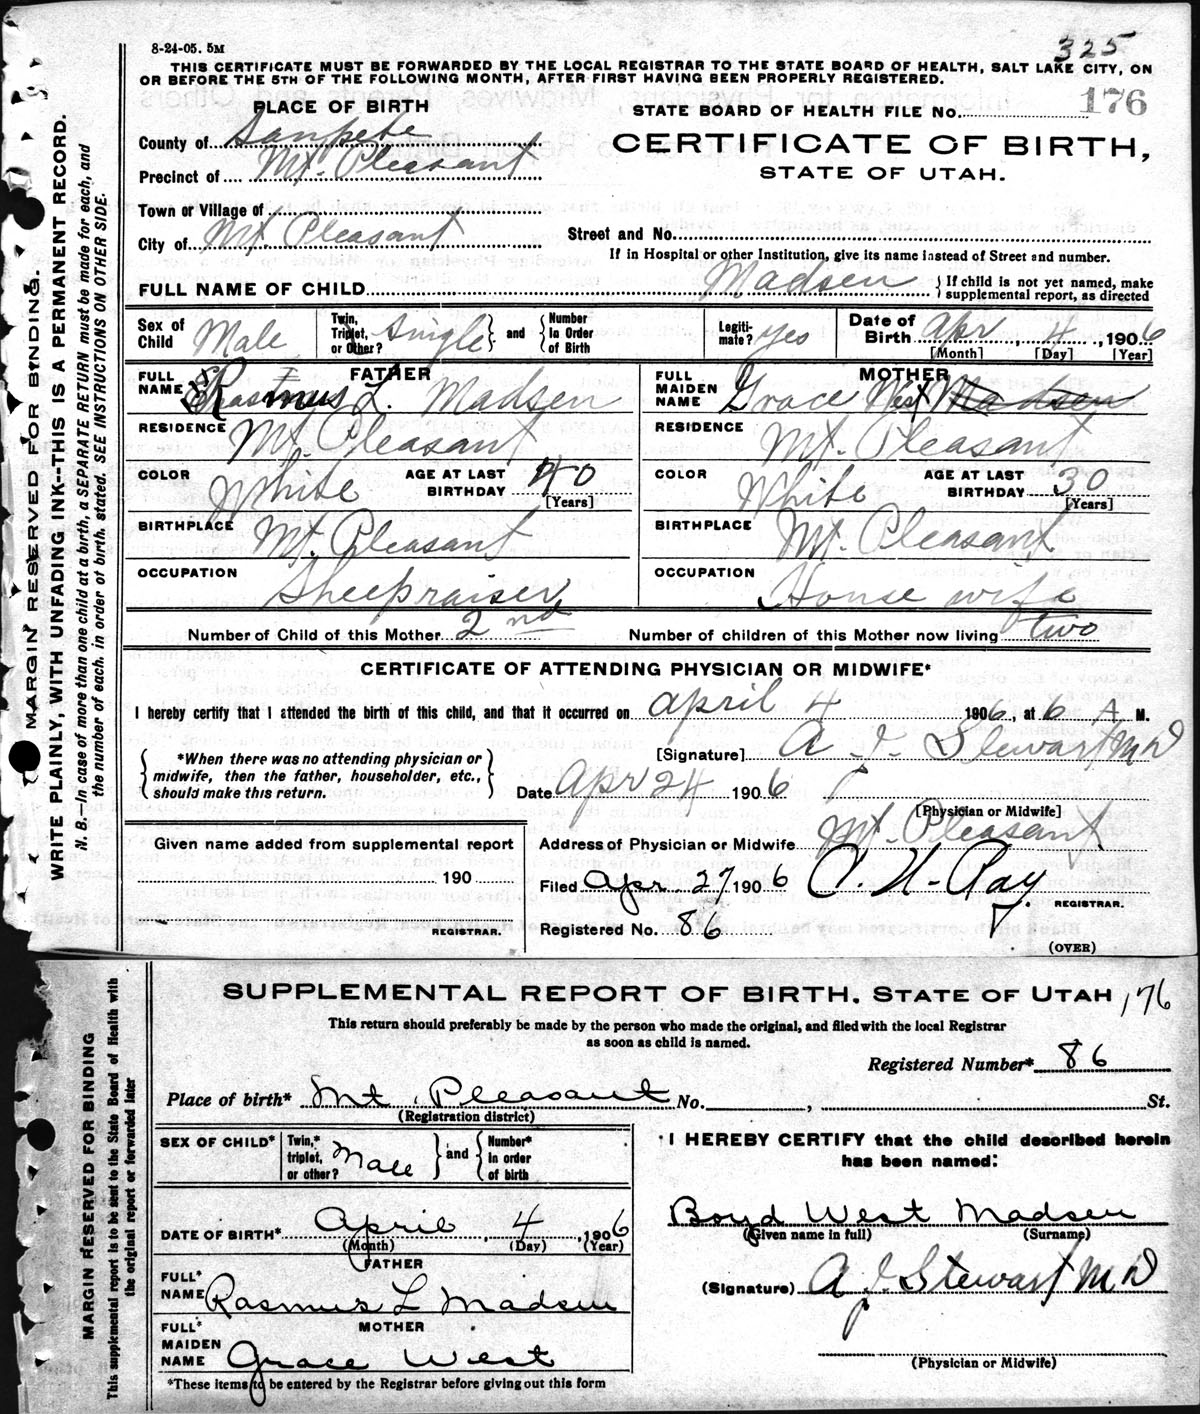 325
8-24-05. 5M
THIS CERTIFICATE MUST BE FORWARDED BY THE LOCAL REGISTRAR TO THE STATE BOARD OF HEALTH, SALT LAKE CITY, ON
OR BEFORE THE 5TH OF THE FOLLOWING MONTH, AFTER FIRST HAVING BEEN PROPERLY REGISTERED.
PLACE OF BIRTH
STATE BOARD OF HEALTH FILE No. 176
County of Sanpete
CERTIFICATE OF BIRTH,
Precinct of Mt. Pleasant
STATE OF UTAH.
Town or Village of
City of Mt Pleasant
Street and No.
If in Hospital or other Institution, give its name instead of Street and number.
FULL NAME OF CHILD Madsen { If child is not yet named, make
supplemental report, as directed
Sex of Child Male
Twin, Triplet, or Other? Single } and { Number In Order of Birth
Legiti-mate? yes
Date of Birth Apr 4, 1906
[Month] [Day] [Year]
FATHER
FULL NAME Rasmus L. Madsen
RESIDENCE Mt. Pleasant
COLOR White AGE AT LAST BIRTHDAY 40
[Years]
BIRTHPLACE Mt. Pleasant
OCCUPATION Sheepraiser
MOTHER
FULL MAIDEN NAME Grace West Madsen
RESIDENCE Mt. Pleasant
COLOR White AGE AT LAST BIRTHDAY 30
[Years]
BIRTHPLACE Mt. Pleasant
OCCUPATION House wife
Number of Child of this Mother 2nd Number of children of this Mother now living two
CERTIFICATE OF ATTENDING PHYSICIAN OR MIDWIFE*
I hereby certify that I attended the birth of this child, and that it occurred on april 4 1906, at 6 A M.
{ *When there was no attending physician or
midwife, then the father, householder, etc.,
should make this return. }
[Signature] A J. Stewart M D
Date Apr 24 1906
[Physician or Midwife]
Given name added from supplemental report
190
REGISTRAR.
Address of Physician or Midwife Mt. Pleasant
Filed Apr 27 1906
REGISTRAR.
Registered No. 86
(OVER)
MARGIN RESERVED FOR BINDING.
WRITE PLAINLY, WITH UNFADING INK--THIS IS A PERMANENT RECORD.
N. B.—In case of more than one child at a birth, a SEPARATE RETURN must be made for each, and
the number of each, in order of birth, stated. SEE INSTRUCTIONS ON OTHER SIDE.
SUPPLEMENTAL REPORT OF BIRTH. STATE OF UTAH 176
This return should preferably be made by the person who made the original, and filed with the local Registrar
as soon as child is named.
Registered Number* 86
Place of birth* Mt. Pleasant No. , St.
(Registration district)
SEX OF CHILD* Twin,* triplet, or other? Male } and { Number* In order of birth
DATE OF BIRTH* April 4, 1906
(Month) (Day) (Year)
FATHER
FULL* NAME Rasmus L Madsen
MOTHER
FULL* MAIDEN NAME Grace West
*These items to be entered by the Registrar before giving out this form
I HEREBY CERTIFY that the child described herein
has been named:
Boyd West Madsen
(Given name in full) (Surname)
(Signature) A J. Stewart M D
(Physician or Midwife)
MARGIN RESERVED FOR BINDING
This supplemental report is to be sent to the State Board of Health with
the original report or forwarded later